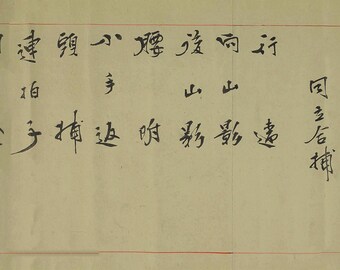 同立合捕
行違
向山影
後山影
腰附
小手返
頭捕
連拍子